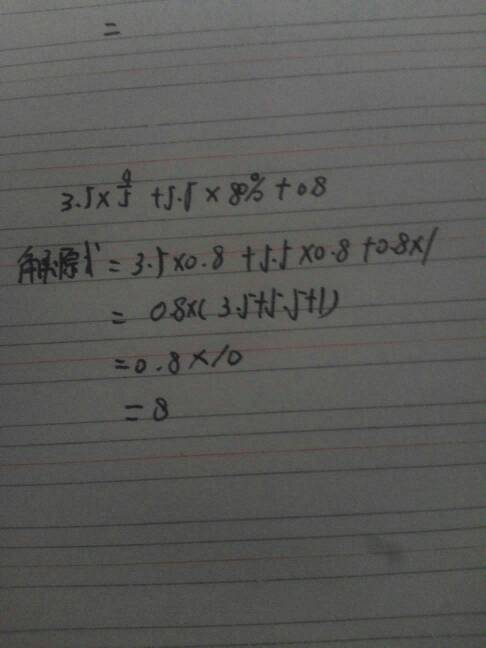 =
3.5×4/5+5.5×80%+0.8
解:原式=3.5×0.8+5.5×0.8+0.8×1
=0.8×(3.5+5.5+1)
=0.8×10
=8